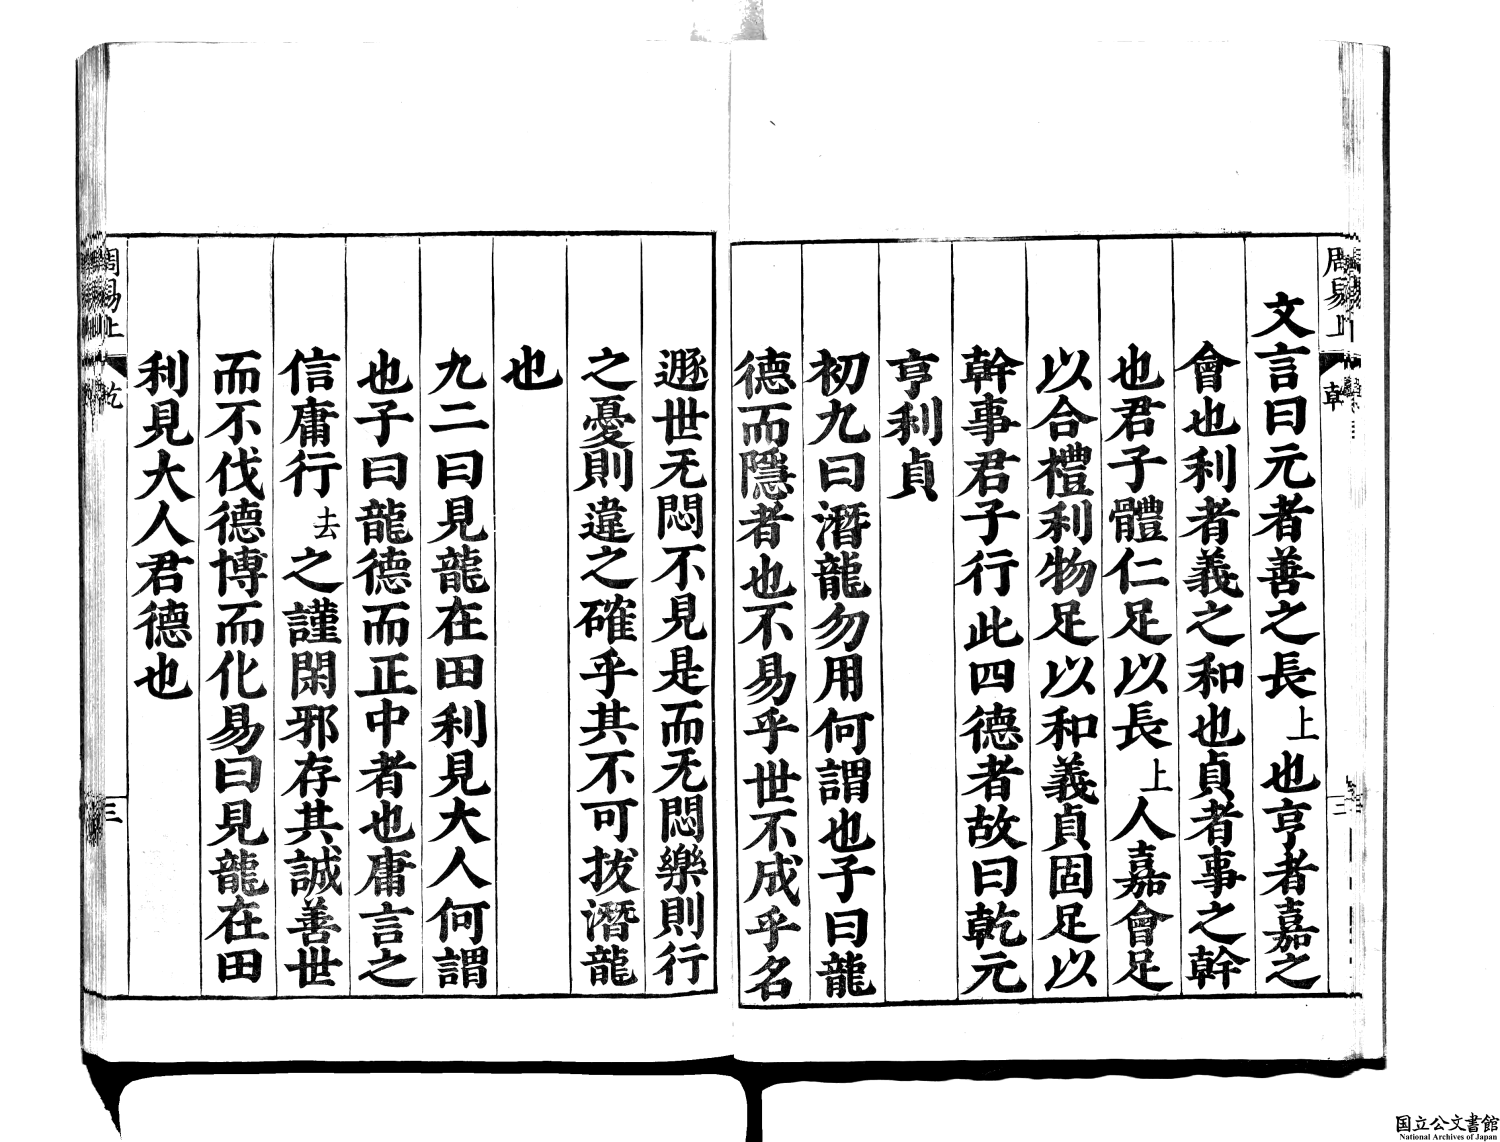 周易上
文言曰元者善之長上也亨者嘉之
會也利者義之和也貞者事之幹
也君子體仁足以長上人嘉會足
以合禮利物足以和義貞固足以
幹事君子行此四德者故曰乾元
亨利貞
初九曰潛龍勿用何謂也子曰龍
德而隱者也不易乎世不成乎名
遯世无悶不見是而无悶樂則行
之憂則違之確乎其不可拔潛龍
也
九二曰見龍在田利見大人何謂
也子曰龍德而正中者也庸言之
信庸行去之謹閑邪存其誠善世
而不伐德博而化易曰見龍在田
利見大人君德也
周易上
乾
三
国立公文書館
National Archives of Japan